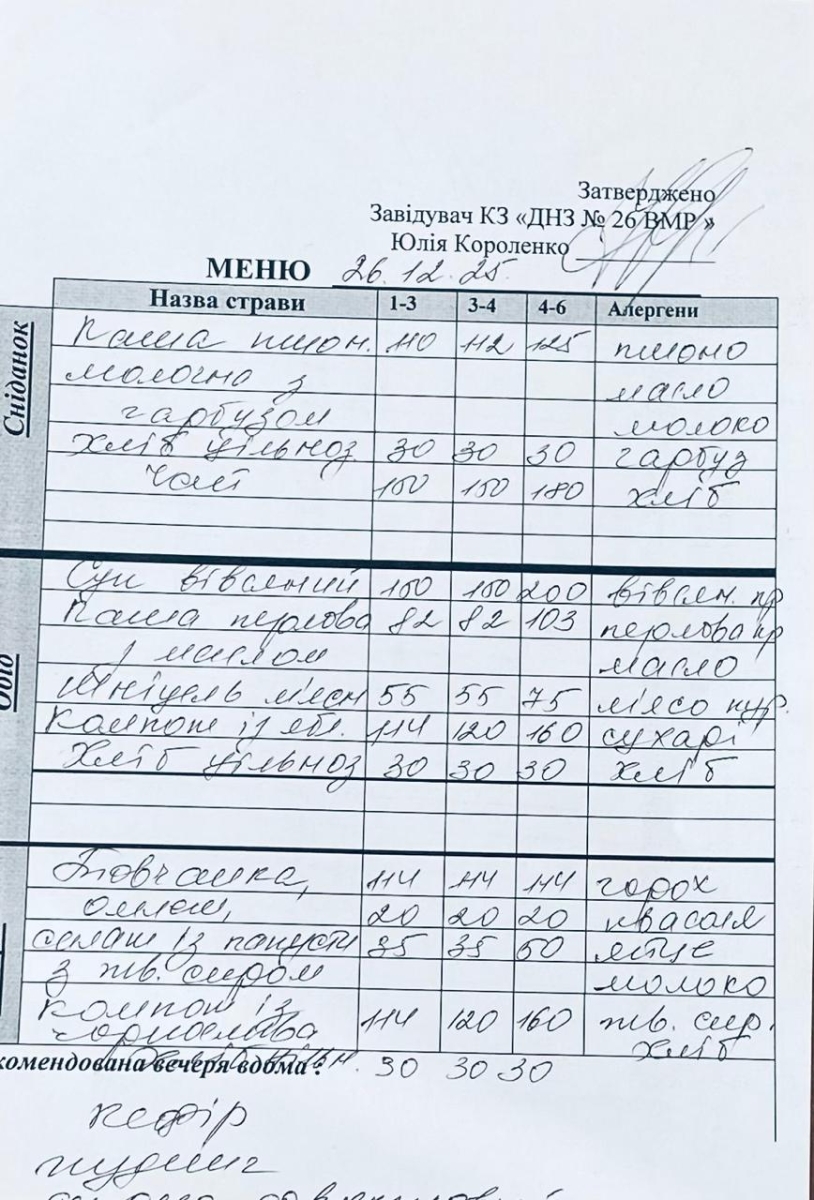 Затверджено
Завідувач КЗ «ДНЗ № 26 ВМР »
Юлія Короленко
МЕНЮ 26.12.25
Назва страви 1-3 3-4 4-6 Алергени
Сніданок
Каша пшон. 110 112 125 пшоно
молочна з масло
гарбузом молоко
Хліб цільноз 30 30 30 гарбуз
Чай 150 150 180 хліб
Обід
Суп вівсяний 150 150 200 вівсян. кр
Каша перлова 82 82 103 перлова кр
з маслом масло
Шніцель м'ясн 55 55 75 м'ясо кур.
Компот із ябл. 114 120 160 сухарі
Хліб цільноз 30 30 30 хліб
Товчанка, 114 114 114 горох
омлет, 20 20 20 квасоля
салат із капусти 35 35 50 яйце
з тв. сиром молоко
Компот із
чорнослива 114 120 160 тв. сир.
хліб
комендована вечеря вдома : 30 30 30
кефір
пудинг